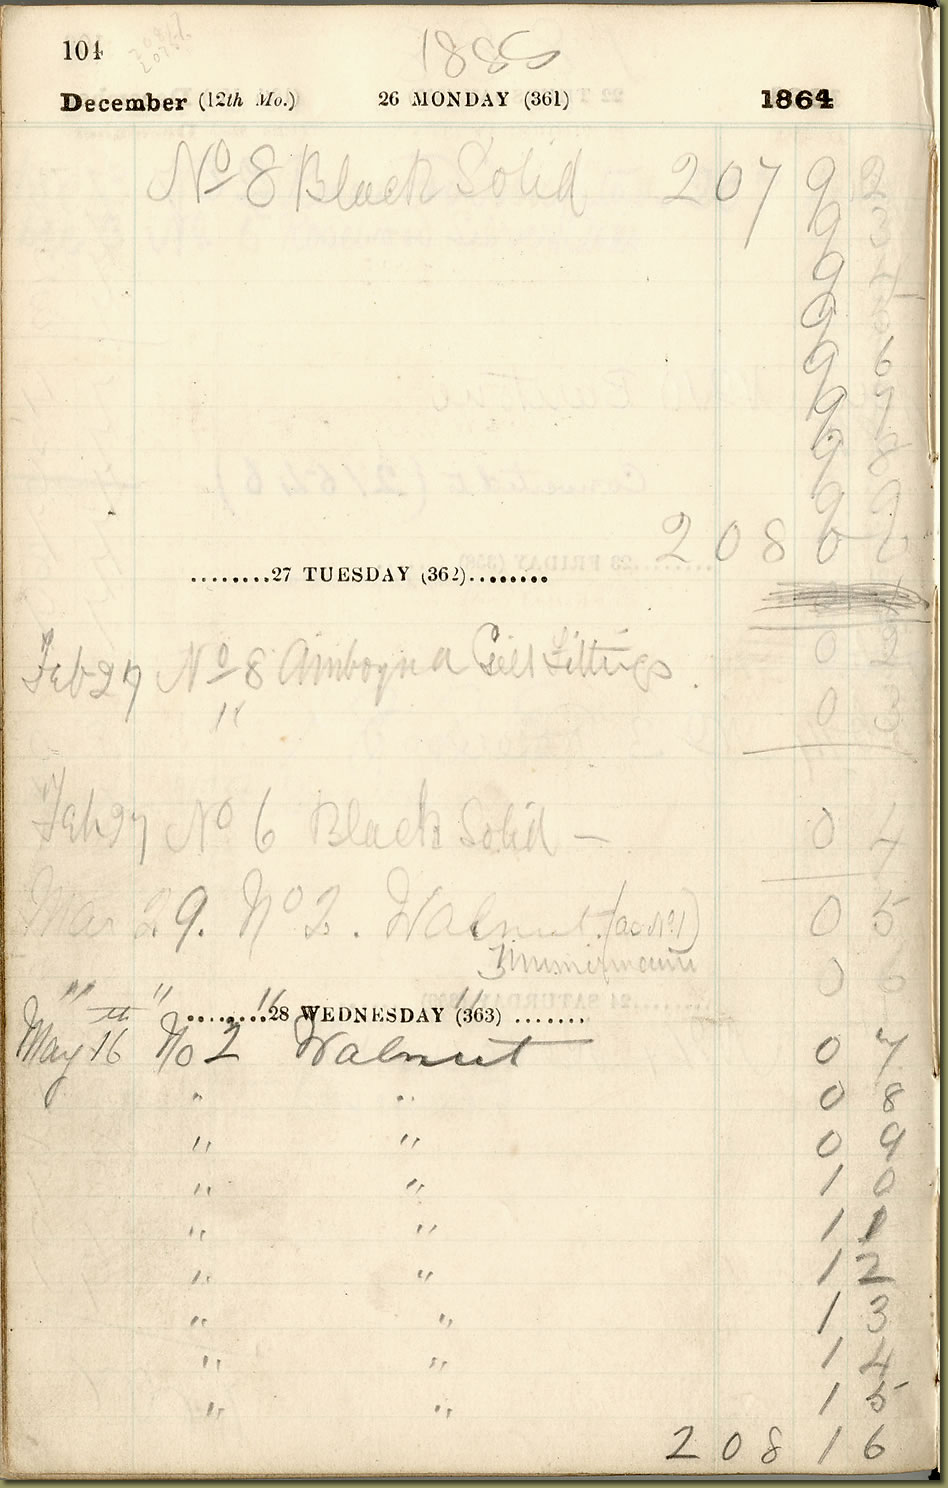 104
1885
December (12th Mo.) 26 MONDAY (361) 1864
No 8 Black Solid 207 9 2
9 3
9 4
9 5
9 6
9 7
9 8
9 9
2 0 8 0 0
........27 TUESDAY (362)........
Feb 27 No 8 Amboyna Gilt Fittings 0 2
" 0 3
Feb 27 No 6 Black Solid — 0 4
Mar 29. No 2. Walnut. (as No 1) 0 5
Zimmermann
" " " " 0 6
........28 WEDNESDAY (363) .......
May 16th No 2 Walnut 0 7
" " 0 8
" " 0 9
" " 1 0
" " 1 1
" " 1 2
" " 1 3
" " 1 4
" " 1 5
2 0 8 1 6